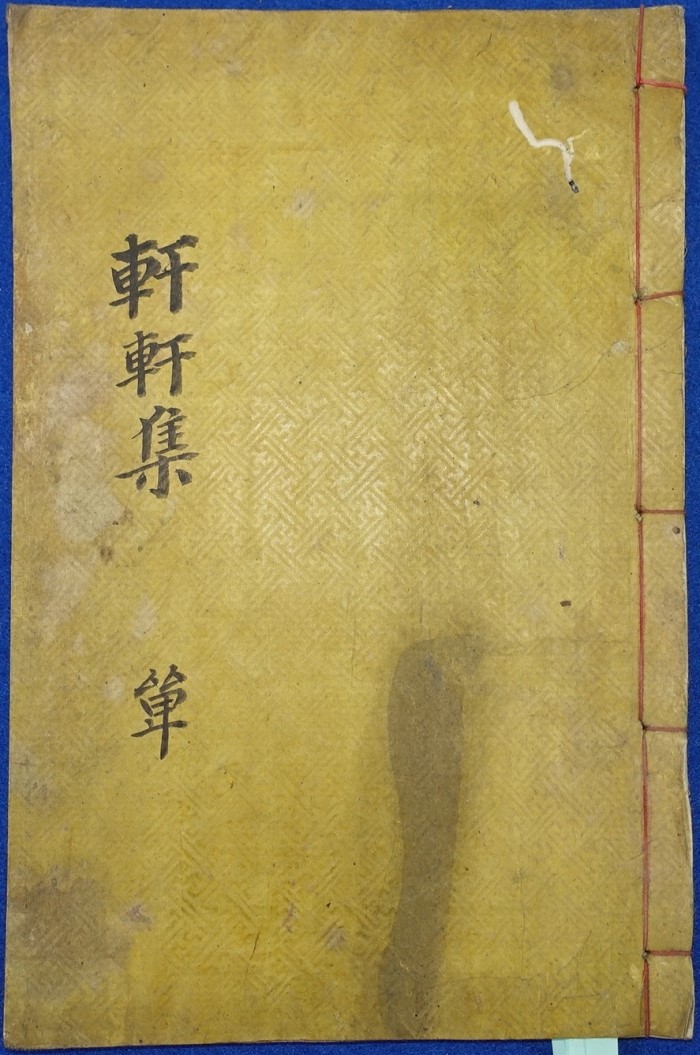 軒軒集 單